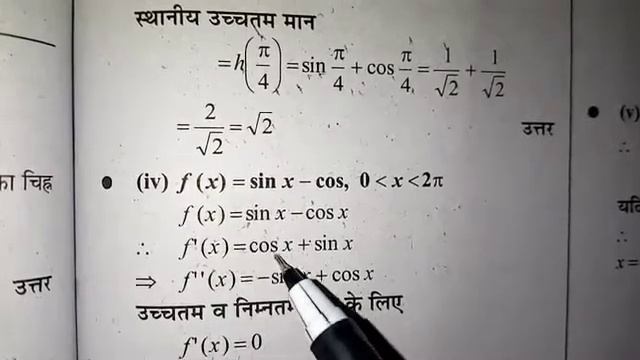 स्थानीय उच्चतम मान
= h(π/4) = sin π/4 + cos π/4 = 1/√2 + 1/√2
= 2/√2 = √2
उत्तर
का चिह्न
• (iv) f (x) = sin x – cos, 0 < x < 2π
f (x) = sin x – cos x
∴ f'(x) = cos x + sin x
उत्तर
⇒ f''(x) = – + cos x
उच्चतम व के लिए
f'(x) = 0
• (v)
∴
यदि
x =